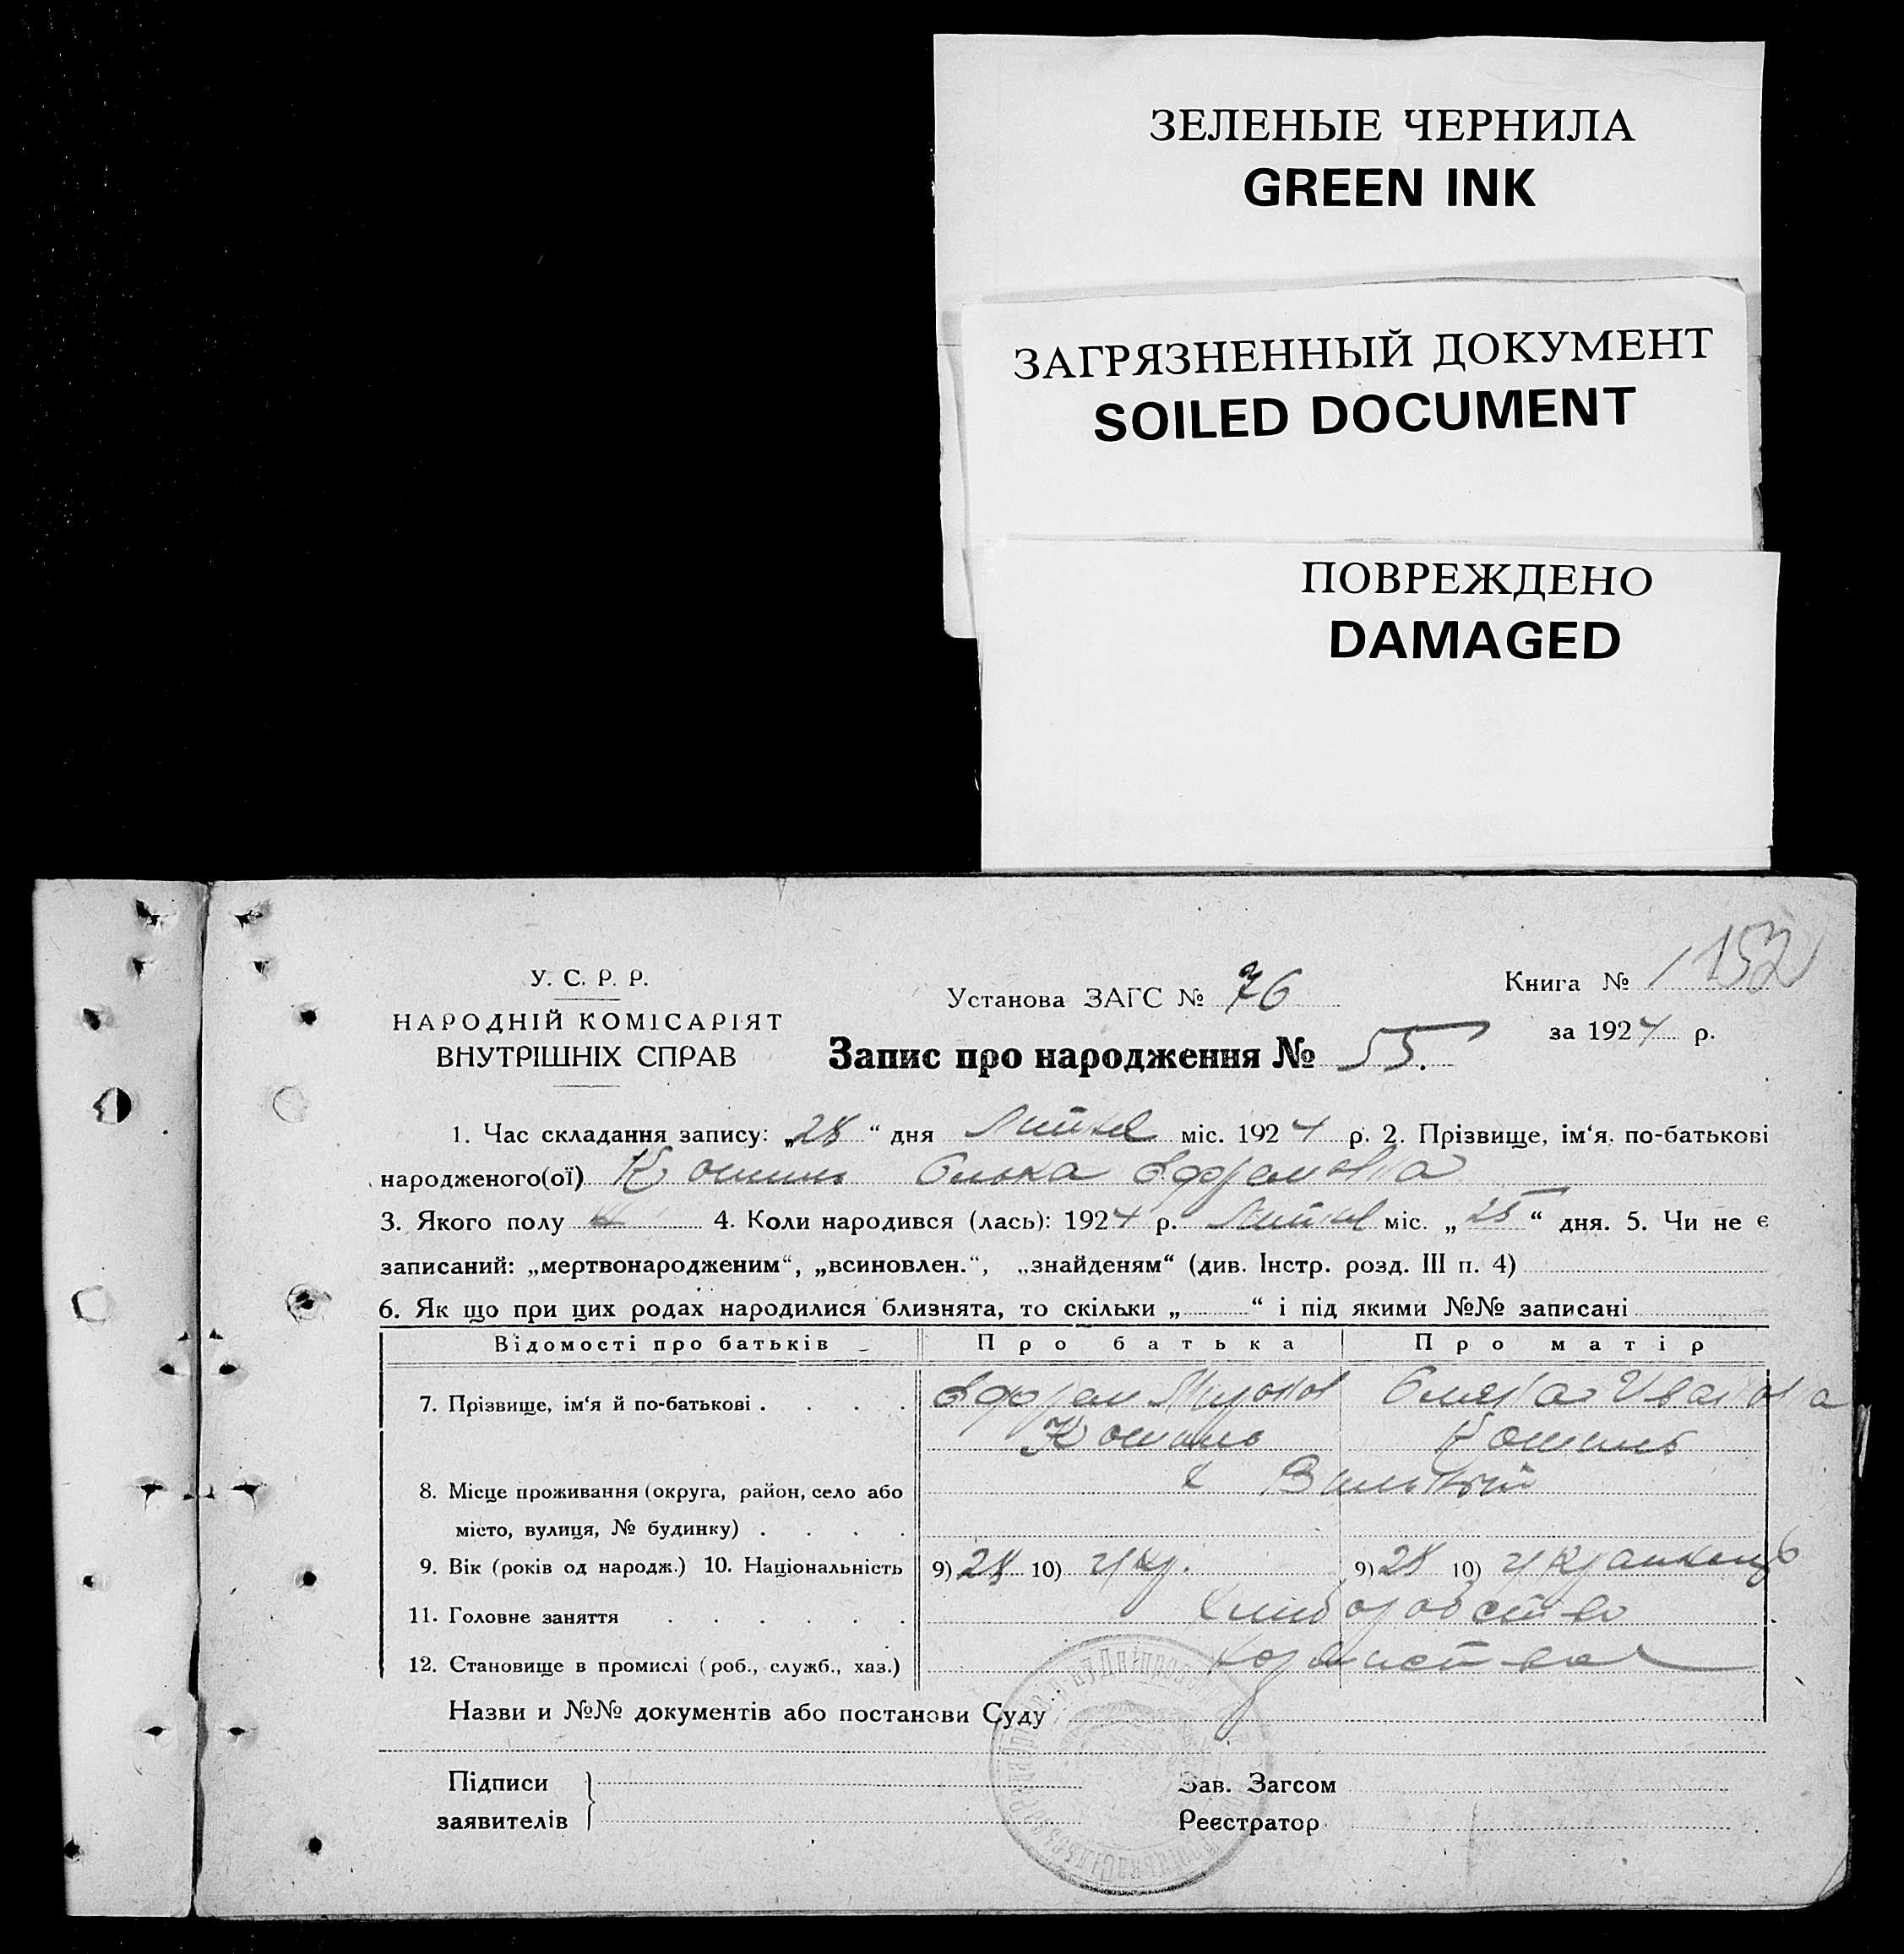 ЗЕЛЕНЫЕ ЧЕРНИЛА
GREEN INK
ЗАГРЯЗНЕННЫЙ ДОКУМЕНТ
SOILED DOCUMENT
ПОВРЕЖДЕНО
DAMAGED
152
У. С. Р. Р.
НАРОДНІЙ КОМІСАРІЯТ
ВНУТРІШНІХ СПРАВ
Установа ЗАГС № 76
Книга № 1
за 1924 р.
Запис про народження № 55.
1. Час складання запису: „28“ дня міс. 1924 р. 2. Прізвище, ім‘я, по-батькові
народженого(ої)
3. Якого полу 4. Коли народився (лась): 1924 р. міс. „25“ дня. 5. Чи не є
записаний: „мертвонародженим“, „всиновлен.“, „знайденям“ (див. Інстр. розд. III п. 4)
6. Як що при цих родах народилися близнята, то скільки „ “ і під якими №№ записані
Відомості про батьків Про батька Про матір
7. Прізвище, ім‘я й по-батькові . . . . Ивановна
8. Місце проживання (округа, район, село або
місто, вулиця, № будинку) . . . .
9. Вік (років од народж.) 10. Національність 9) 28 10) укр. 9) 28 10)
11. Головне заняття . . . . . . хліборобство
12. Становище в промислі (роб., служб., хаз.)
Назви и №№ документів або постанови Суду
Підписи
заявителів
Зав. Загсом
Реєстратор